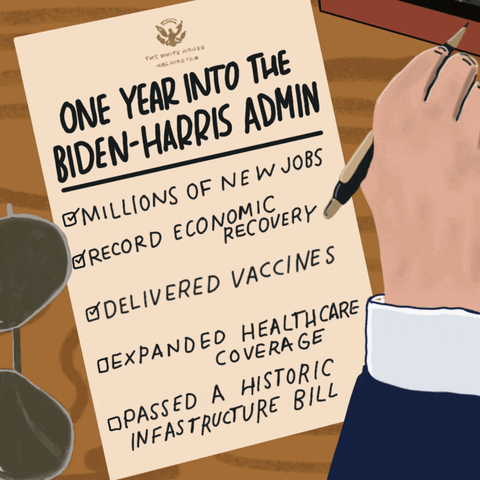 THE WHITE HOUSE
WASHINGTON
ONE YEAR INTO THE
BIDEN-HARRIS ADMIN
MILLIONS OF NEW JOBS
RECORD ECONOMIC
RECOVERY
DELIVERED VACCINES
EXPANDED HEALTHCARE
COVERAGE
PASSED A HISTORIC
INFASTRUCTURE BILL